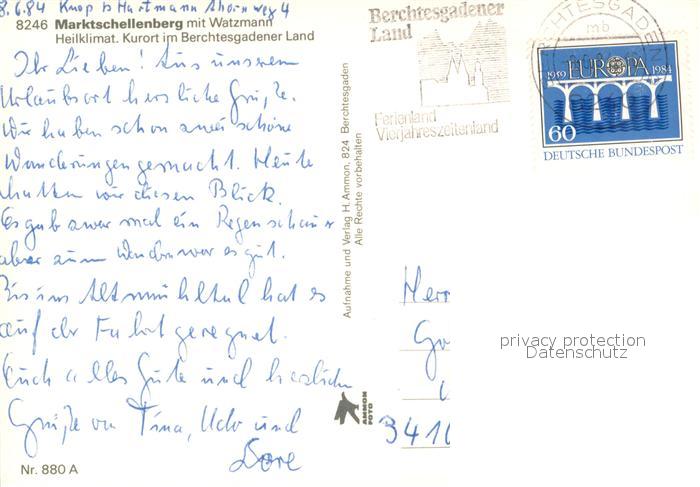 8.6.84 Knop b Hartmann Ahornweg 4
8246 Marktschellenberg mit Watzmann
Heilklimat. Kurort im Berchtesgadener Land
Ihr Lieben! Aus unserem
Urlaubsort herzliche Grüße.
Wir haben schon zwei schöne
Wanderungen gemacht. Heute
hatten wir diesen Blick.
Es gab zwar mal ein Regenschauer
aber zum Wandern war es gut.
Bis ins Altmühltal hat es
auf der Fahrt geregnet.
Euch alles Gute und herzliche
Grüße von Tina, Udo und
Lore
Nr. 880 A
Aufnahme und Verlag H. Ammon, 824 Berchtesgaden
Alle Rechte vorbehalten
AMMON
FOTO
Berchtesgadener
Land
Ferienland
Vierjahreszeitenland
BERCHTESGADEN
mb
1959 EUROPA 1984
60
DEUTSCHE BUNDESPOST
Herr
privacy protection
Datenschutz
341